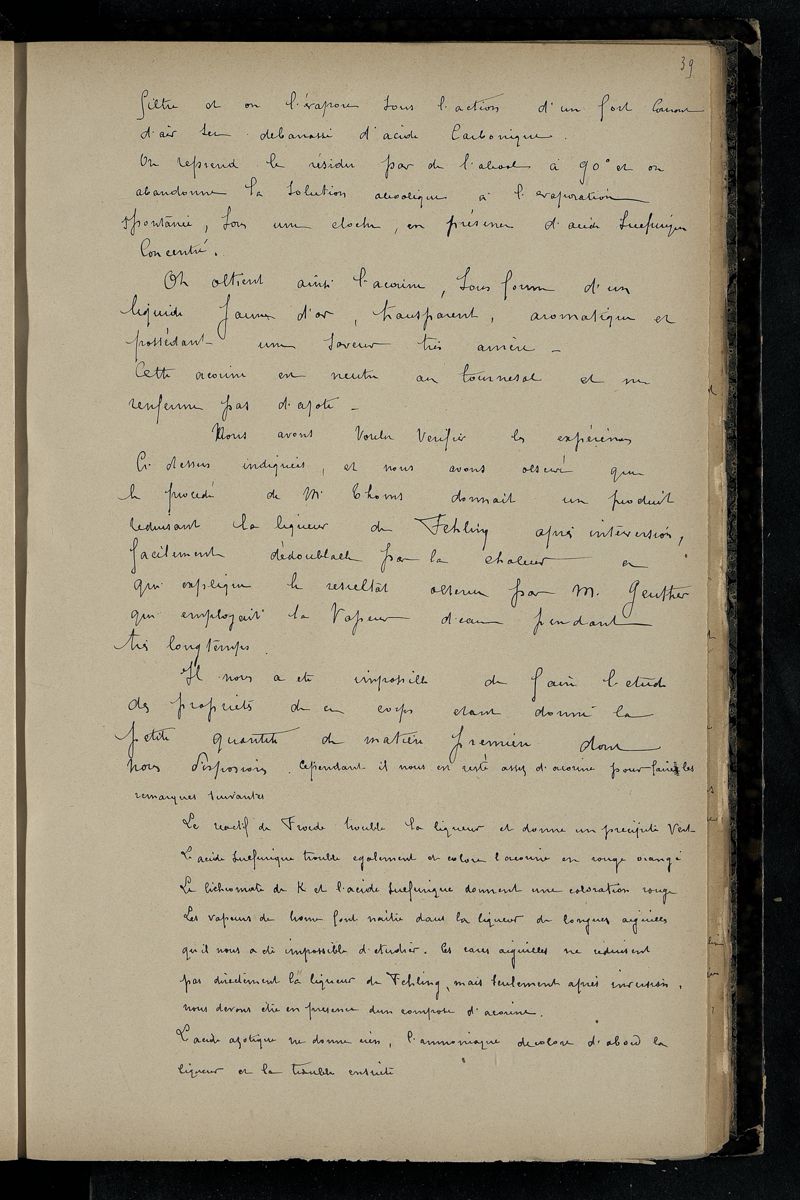 39
filtre et on l'évapore sous l'action d'un fort courant
d'air sec debarassé d'acide Carbonique.
On reprend le résidu par de l'alcool à 90° et on
abandonne la solution alcoolique à l'evaporation
spontanée, sous une cloche, en présence d'acide Sulfurique
Concentré.
On obtient ainsi l'acorine, sous forme d'un
liquide Jaune d'or, transparent, aromatique et
possédant une saveur très amère _
Cette acorine est neutre au tournesol et ne
renferme pas d'azote _
Nous avons voulu verifier les expériences
ci dessus indiquées, et nous avons observé que
le procédé de Mr Thoms donnait un produit
reduisant la liqueur de Fehling après interversion,
facilement dédoublable par la chaleur ce
qui explique le resultat obtenu par M. Geuther
qui employait la Vapeur d'eau pendant
très longtemps.
Il nous a été impossible de faire l'etude
des propriétés de ce corps etant donné la
petite quantité de matière première dont
nous disposions. Cependant il nous est resté assez d'acorine pour faire les
remarques suivantes
Le reactif de Froede trouble la liqueur et donne un precipité Vert
L'acide sulfurique trouble egalement et colore l'acorine en rouge orangé
Le bichromate de K et l'acide sulfurique donnent une coloration rouge
Les vapeurs de brome font naitre dans la liqueur de longues aiguilles
qu'il nous a été impossible d'etudier. Ces aiguilles ne reduisent
pas directement la liqueur de Fehling, mais seulement après inversion,
nous devons etre en presence d'un composé d'acorine.
L'acide azotique ne donne rien, l'ammoniaque decolore d'abord la
liqueur et la trouble ensuite